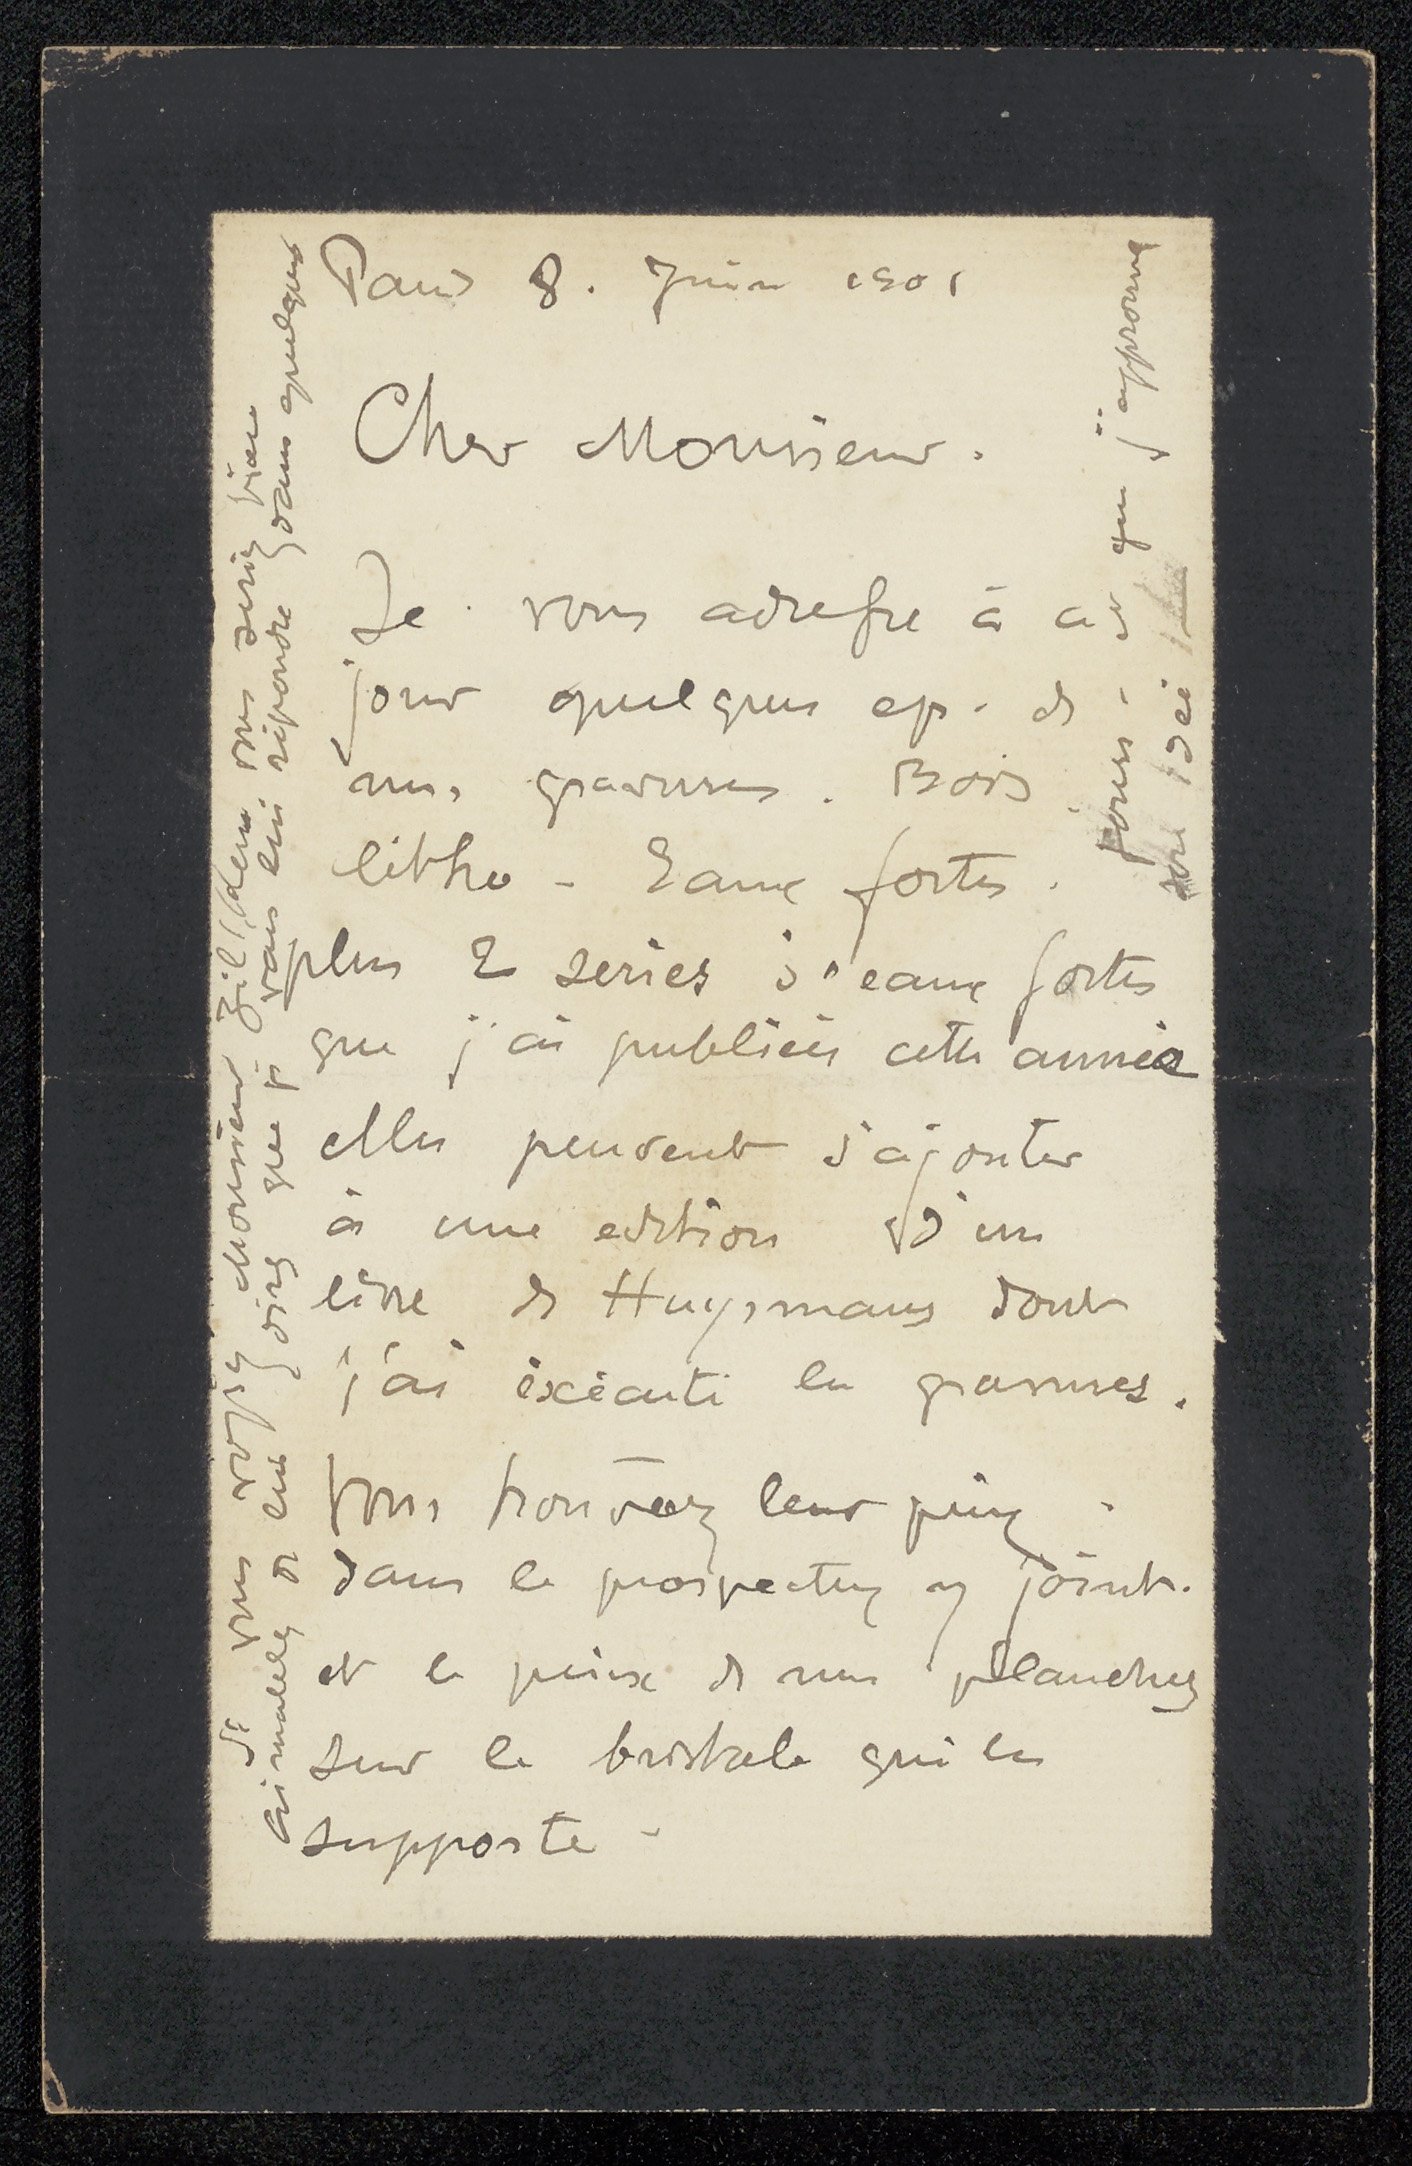 Paris 8. Juin 1901
Cher Monsieur.
Je vous adresse à ce
jour quelques ep. de
mes gravures. Bois.
litho - Eaux fortes.
plus 2 series d'eaux fortes
que j'ai publiées cette année
elles peuvent s'ajouter
à une edition d'un
livre de Huysmans dont
j'ai éxécuté les gravures.
Vous trouverez leur prix
dans le prospectus cy joint.
et le prix de mes planches
sur le bristole qui les
supporte -
Si vous voyez Monsieur Zilcken vous seriez bien
aimable de lui dire que je vais lui repondre dans quelques
jours - et que j'approuve
son idée